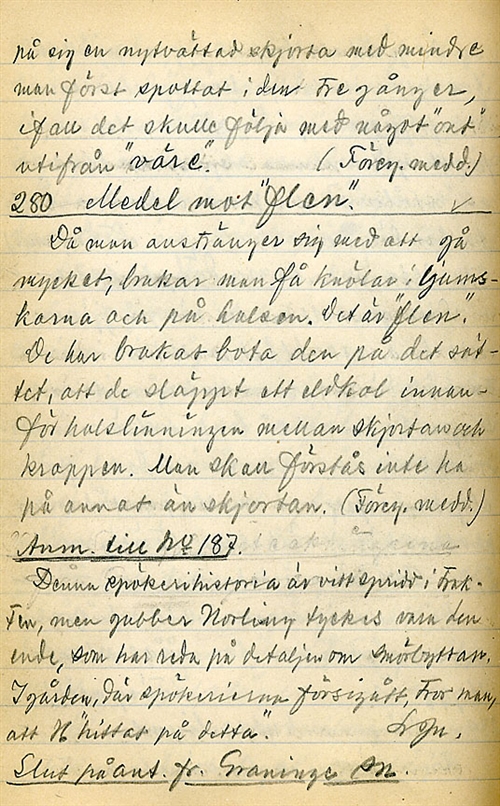 på sig en nytvättad skjorta med mindre
man först spottat i den tre gånger,
ifall det skulle följa med något "ont"
utifrån "väre". (Föreg. medd.)
280 Medel mot "flen".
Då man anstränger sig med att gå
mycket, brukar man få knölar i ljums-
karna och på halsen. Det är "flen".
De har brukat bota den på det sät-
tet, att de släppt ett eldkol innan-
för halslinningen mellan skjortan och
kroppen. Man skall förstås inte ha
på annat än skjortan. (Föreg. medd.)
Anm. till No 187.
Denna spökerihistoria är vitt spridd i trak-
ten, men gubben Norling tyckes vara den
ende, som har reda på detaljen om smörbyttan.
I gården, där spökerierna försiggått, tror man,
att N "hittat på detta".
Slut på ant. fr. Graninge sn.